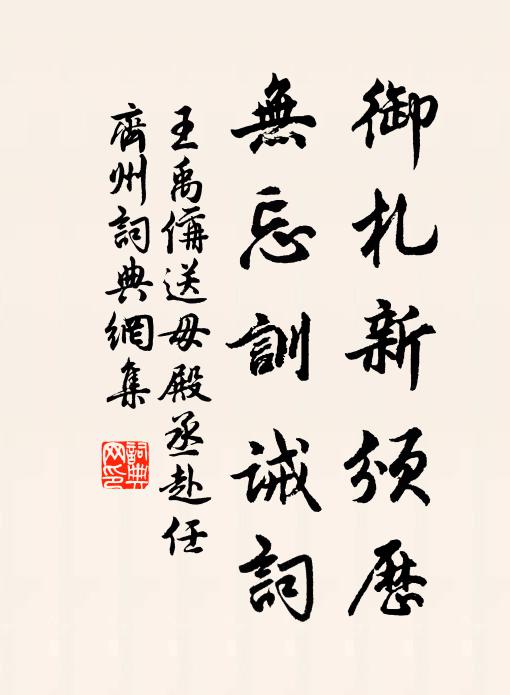 御札新頒歷
無忘訓誡詞
王禹偁送毋殿丞赴任
齊州詞典網集
詞典网印